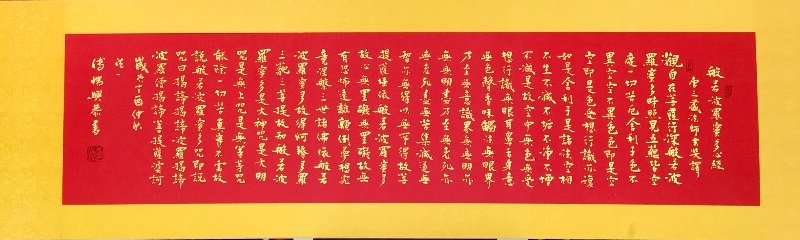 般若波羅蜜多心經
唐三藏法師玄奘譯
觀自在菩薩行深般若波
羅蜜多時照見五蘊皆空
度一切苦厄舍利子色不
異空空不異色色即是空
空即是色受想行識亦復
如是舍利子是諸法空相
不生不滅不垢不淨不增
不減是故空中無色無受
想行識無眼耳鼻舌身意
無色聲香味觸法無眼界
乃至無意識界無無明亦
無無明盡乃至無老死亦
無老死盡無苦集滅道無
智亦無得以無所得故菩
提薩埵依般若波羅蜜多
故心無罣礙無罣礙故無
有恐怖遠離顛倒夢想究
竟涅槃三世諸佛依般若
波羅蜜多故得阿耨多羅
三藐三菩提故知般若波
羅蜜多是大神咒是大明
咒是無上咒是無等等咒
能除一切苦真實不虛故
說般若波羅蜜多咒即說
咒曰揭諦揭諦波羅揭諦
波羅僧揭諦菩提薩婆訶
歲次丁酉仲秋